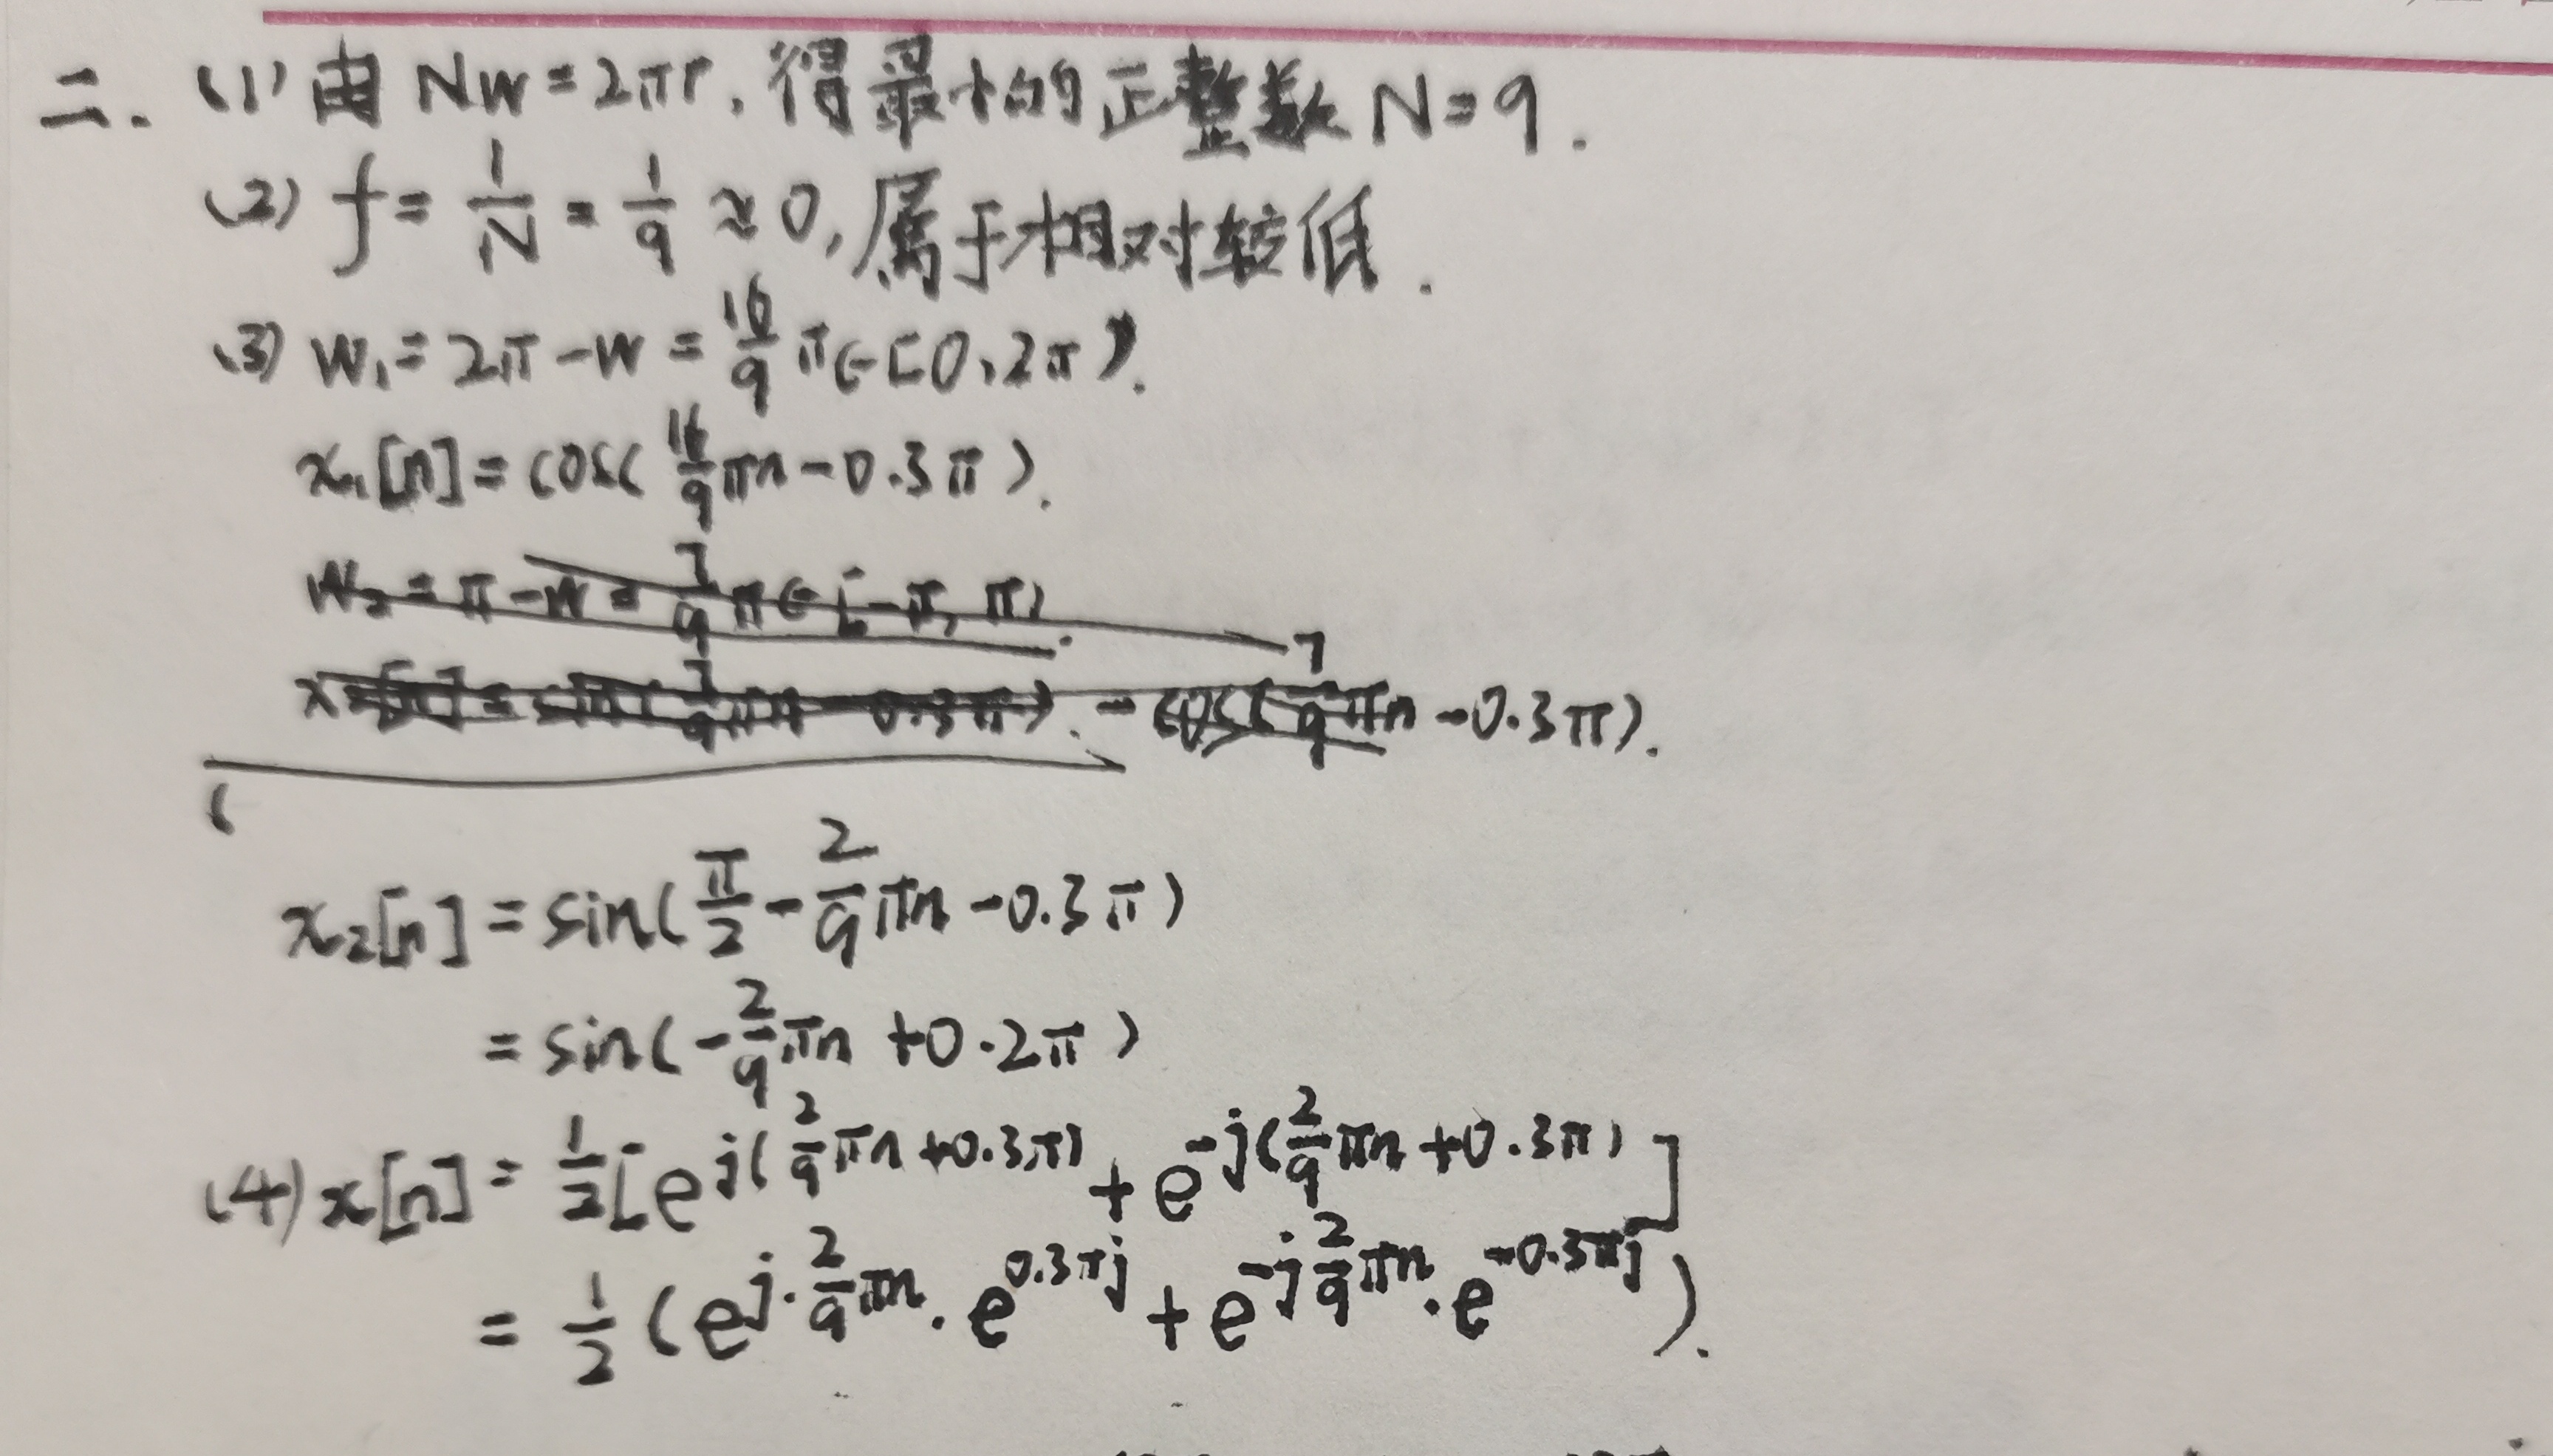 二. (1) 由 Nw=2πr, 得最小的正整数 N=9.
(2) f=1/N=1/9≈0, 属于相对较低.
(3) w₁=2π-w=16/9π∈[0,2π).
x₁[n]=cos(16/9πn-0.3π).
w₂=π-w=7/9π∈[-π,π).
-cos(7/9πn-0.3π).
x₂[n]=sin(π/2-2/9πn-0.3π)
=sin(-2/9πn+0.2π)
(4) x[n]=1/2[e^{j(2/9πn+0.3π)}+e^{-j(2/9πn+0.3π)}]
=1/2(e^{j·2/9πn}·e^{0.3πj}+e^{-j2/9πn}·e^{-0.3πj}).